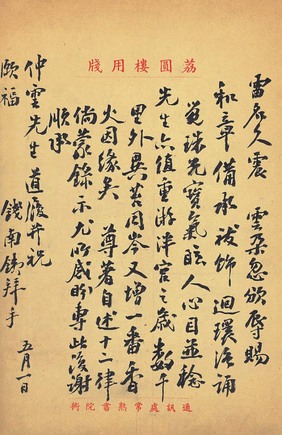 荔圓樓用牋
雷名久震 雲朵忽頒辱賜
和章備承祓飾迴環諷誦
覺珠光寶氣眩人心目並稔
先生亦值重游泮宮之歲數千
里外異苔同岑又增一番香
火因緣矣 尊著自述十二律
倘蒙錄示尤所感盼專此復謝
順承
仲雲先生道履并祝
頤福 錢南鐵拜手 五月一日
通訊處常熟書院衖